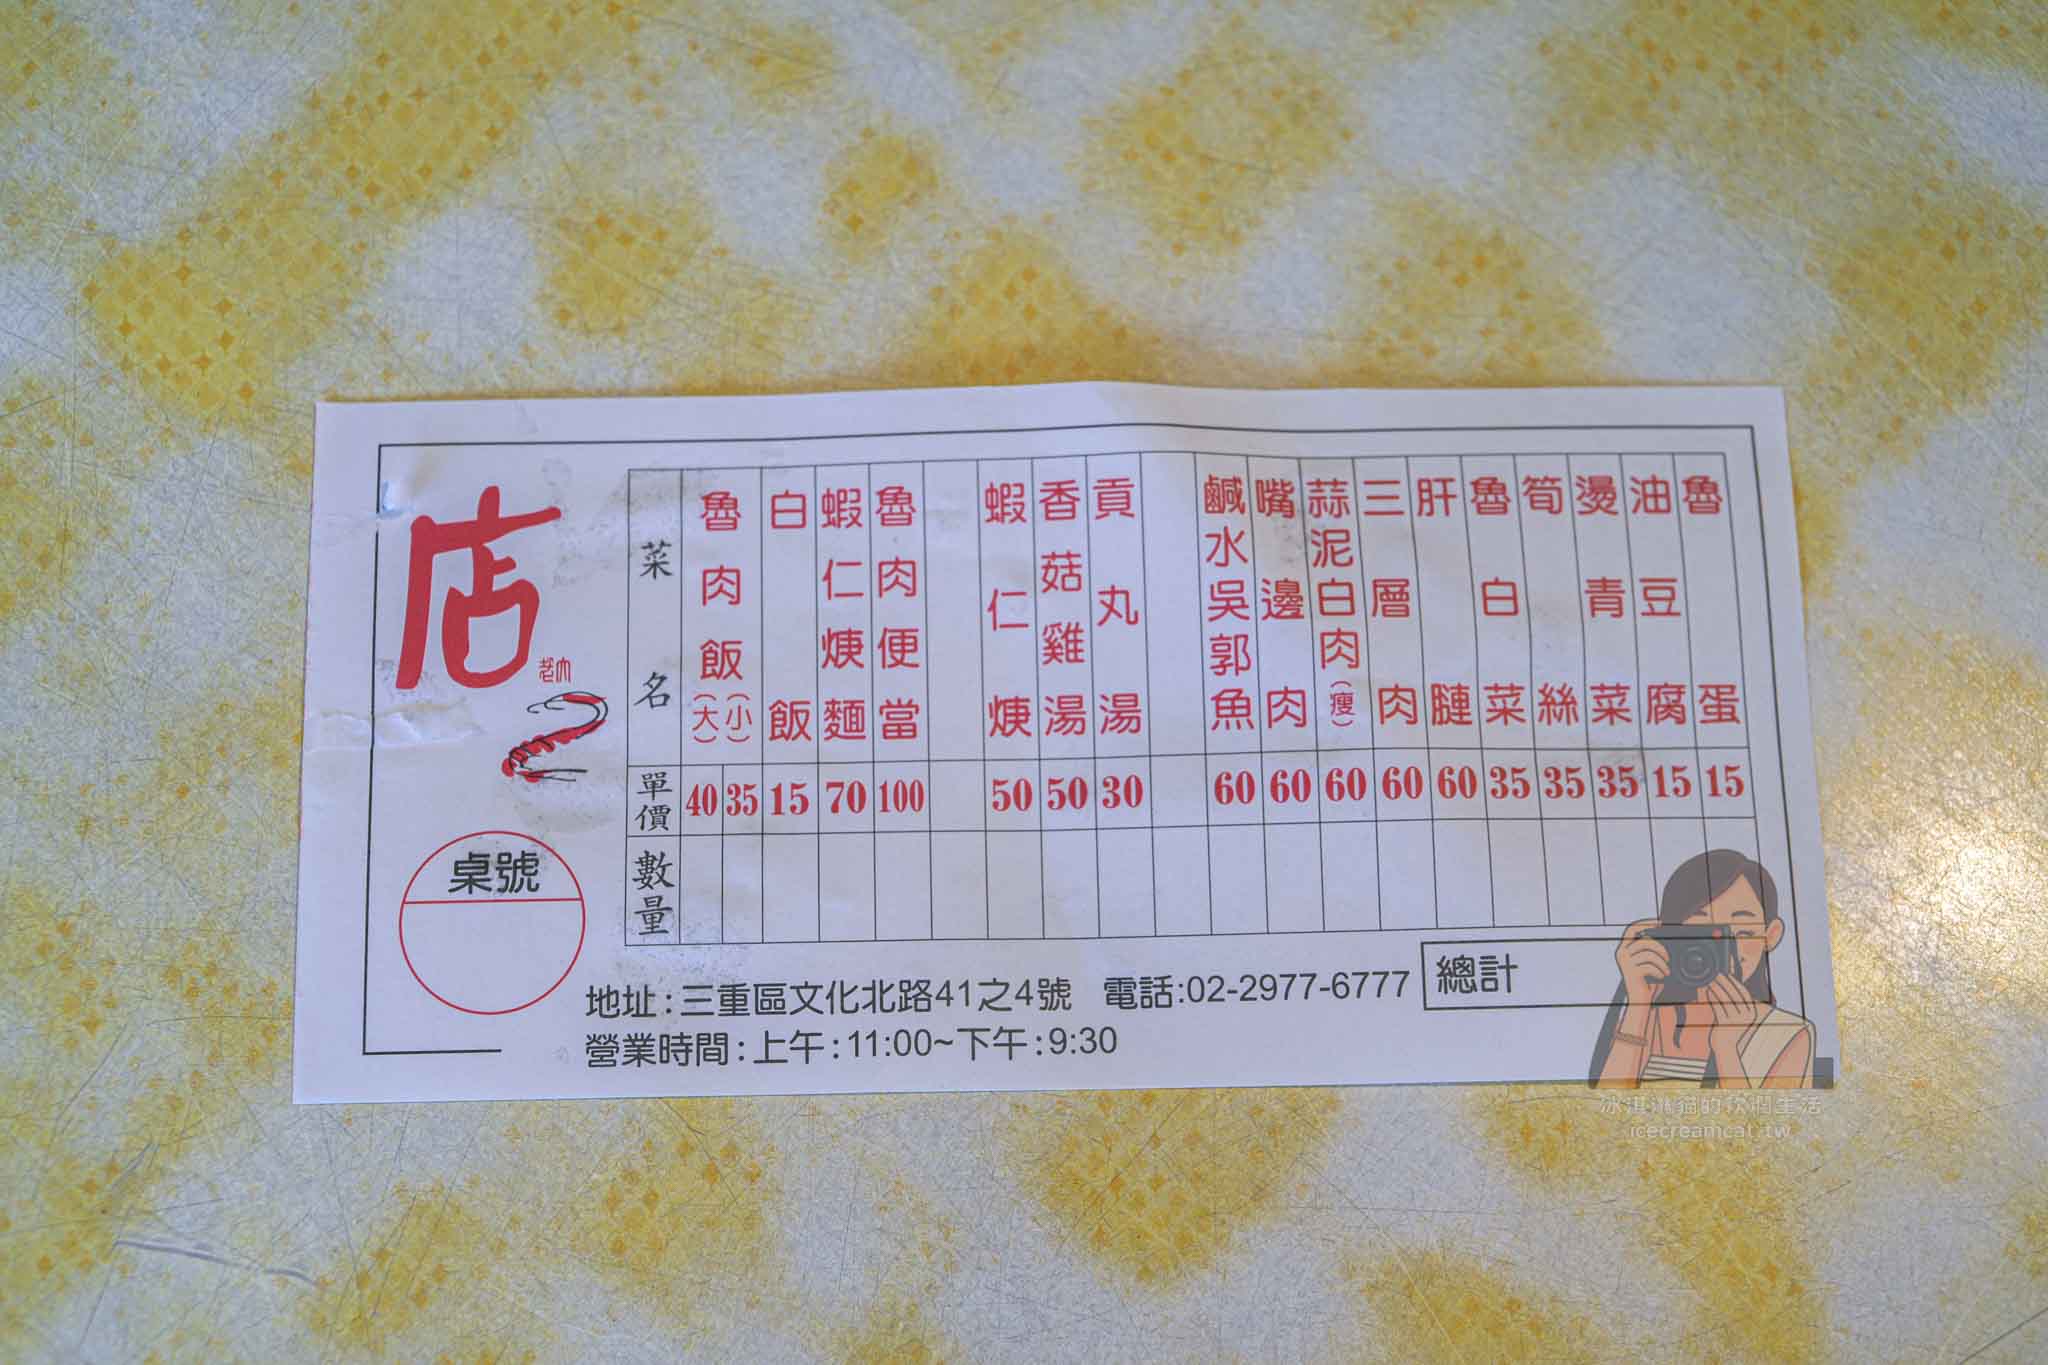 店
菜名
單價
數量
魯肉飯(大)(小)
40 35
白飯
15
蝦仁焿麵
70
魯肉便當
100
蝦仁焿
50
香菇雞湯
50
貢丸湯
30
鹹水吳郭魚
60
嘴邊肉
60
蒜泥白肉(瘦)
60
三層肉
60
肝腱
60
魯白菜
35
筍絲
35
燙青菜
35
油豆腐
15
魯蛋
15
桌號
地址:三重區文化北路41之4號 電話:02-2977-6777
營業時間:上午:11:00~下午:9:30
總計
icecreamcat.tw